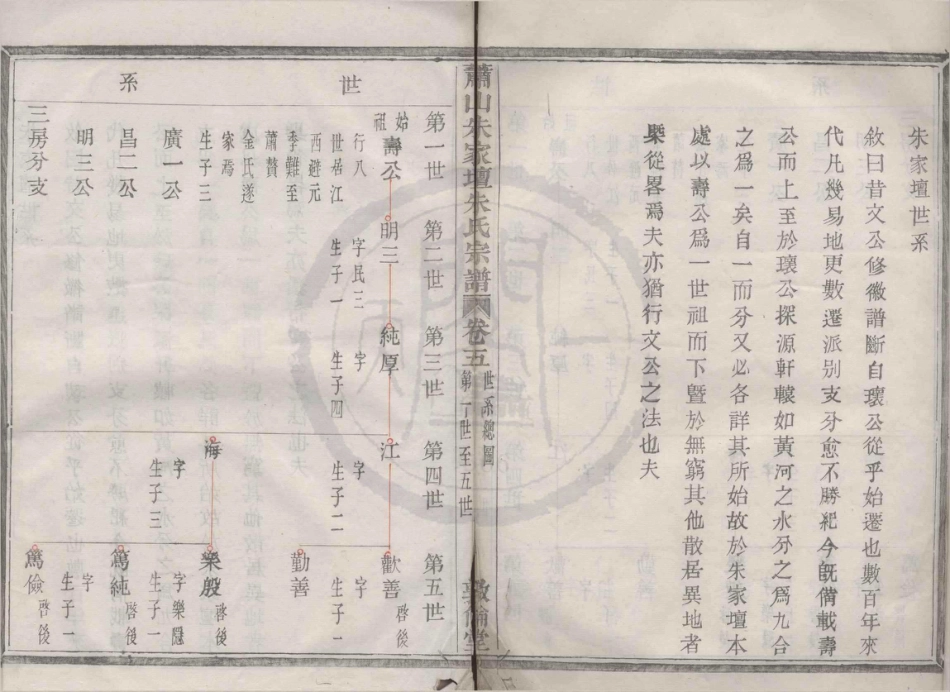 朱家壇世系
敘曰昔文公修徽譜斷自瓌公從乎始遷也數百年來
代凡幾易地更數遷派别支分愈不勝紀今既備載壽
公而上至於瓌公探源軒轅如黃河之水分之爲九合
之爲一矣自一而分又必各詳其所始故於朱家壇本
處以壽公爲一世祖而下暨於無窮其他散居異地者
槩從畧焉夫亦猶行文公之法也夫
蕭山朱家壇朱氏宗譜
卷五
世系總圖
第一世至五世
敦倫堂
世系
第一世
第二世
第三世
第四世
第五世
始祖
壽公
行八
世居江
西避元
季難至
蕭贅
金氏遂
家焉
生子三
廣一公
昌二公
明三公
三房分支
明三
字民三
生子一
純厚
字
生子四
江
字
生子二
海
字
生子三
歡善
啓後
字
生子一
勸善
樂殷
啓後
字樂隱
生子一
篤純
啓後
字
生子一
篤儉
啓後